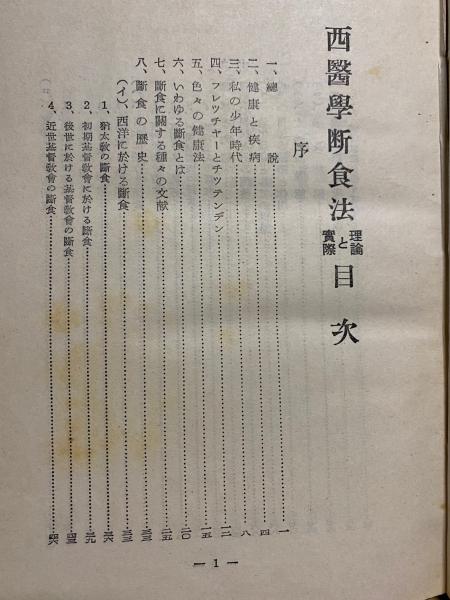 西醫學断食法 理論と實際 目次
序
一、總說……一
二、健康と疾病……四
三、私の少年時代……八
四、フレッチャーとチッテンデン……一二
五、色々の健康法……一五
六、いわゆる斷食とは……二〇
七、斷食に關する種々の文献……二五
八、斷食の歷史……三三
(イ)、西洋に於ける斷食……三三
1、猶太敎の斷食……三六
2、初期基督敎會に於ける斷食……三九
3、後世に於ける基督敎會の斷食……四三
4、近世基督敎會の斷食……四六
— 1 —